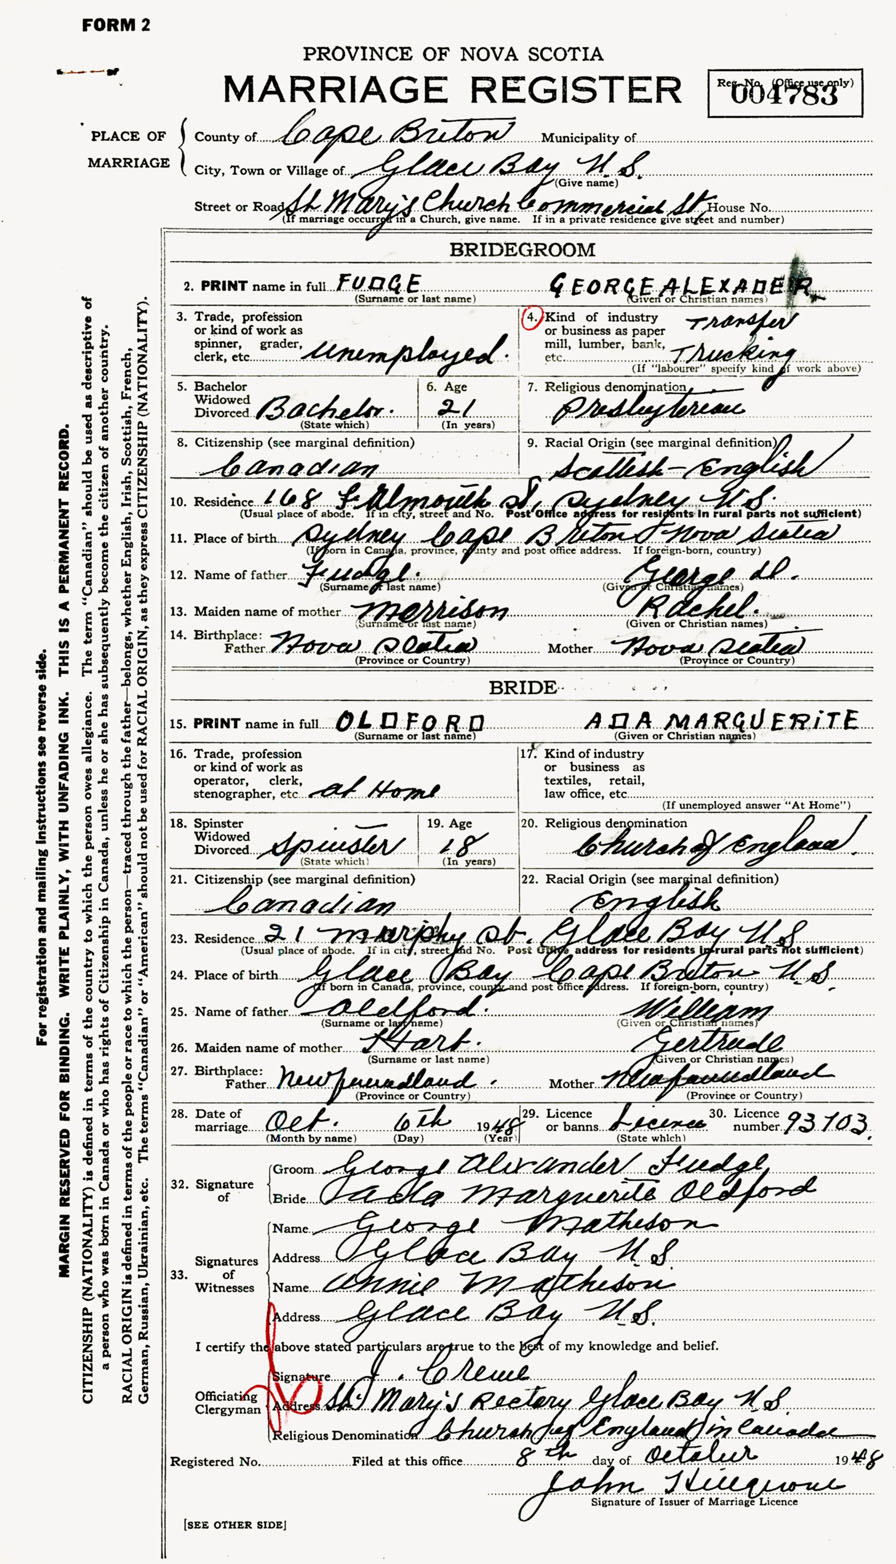 FORM 2
PROVINCE OF NOVA SCOTIA
MARRIAGE REGISTER
Reg. No. (Office use only)
004783
PLACE OF MARRIAGE
County of Cape Briton Municipality of
City, Town or Village of Glace Bay N.S.
(Give name)
Street or Road St Mary's Church Commercial St. House No.
(If marriage occurred in a Church, give name. If in a private residence give street and number)
BRIDEGROOM
2. PRINT name in full FUDGE GEORGE ALEXADER
(Surname or last name) (Given or Christian names)
3. Trade, profession or kind of work as spinner, grader, clerk, etc. unemployed.
4. Kind of industry or business as paper mill, lumber, bank, etc. Transfer Trucking
(If "labourer" specify kind of work above)
5. Bachelor Widowed Divorced Bachelor.
(State which)
6. Age 21
(In years)
7. Religious denomination Presbyterean
8. Citizenship (see marginal definition) Canadian
9. Racial Origin (see marginal definition) Scottish-English
10. Residence 168 Falmouth St, Sydney N.S.
(Usual place of abode. If in city, street and No. Post Office address for residents in rural parts not sufficient)
11. Place of birth Sydney Cape Briton Nova Scotia
(If born in Canada, province, county and post office address. If foreign-born, country)
12. Name of father Fudge. George
(Surname or last name) (Given or Christian names)
13. Maiden name of mother Morrison Rachel.
(Surname or last name) (Given or Christian names)
14. Birthplace: Father Nova Scotia Mother Nova Scotia
(Province or Country) (Province or Country)
BRIDE
15. PRINT name in full OLDFORD ADA MARGUERITE
(Surname or last name) (Given or Christian names)
16. Trade, profession or kind of work as operator, clerk, stenographer, etc. at Home
17. Kind of industry or business as textiles, retail, law office, etc.
(If unemployed answer "At Home")
18. Spinster Widowed Divorced Spinster
(State which)
19. Age 18
(In years)
20. Religious denomination Church of England.
21. Citizenship (see marginal definition) Canadian
22. Racial Origin (see marginal definition) English
23. Residence 21 Murphy St. Glace Bay N.S
(Usual place of abode. If in city, street and No. Post Office address for residents in rural parts not sufficient)
24. Place of birth Glace Bay Cape Breton N.S.
(If born in Canada, province, county and post office address. If foreign-born, country)
25. Name of father Oldford. William
(Surname or last name) (Given or Christian names)
26. Maiden name of mother Hart. Gertrude
(Surname or last name) (Given or Christian names)
27. Birthplace: Father Newfoundland. Mother Newfoundland
(Province or Country) (Province or Country)
28. Date of marriage Oct. 6th 1948
(Month by name) (Day) (Year)
29. Licence or banns Licence
(State which)
30. Licence number 93703.
32. Signature of
Groom George Alexander Fudge
Bride Ada Marguerite Oldford
33. Signatures of Witnesses
Name George Matheson
Address Glace Bay N.S
Name Annie Matheson
Address Glace Bay N.S.
I certify the above stated particulars are true to the best of my knowledge and belief.
Officiating Clergyman
Signature J.
Address St. Mary's Rectory Glace Bay N.S
Religious Denomination Church of England in Canada
Registered No. Filed at this office 8th day of October 1948
John
Signature of Issuer of Marriage Licence
[SEE OTHER SIDE]
For registration and mailing instructions see reverse side.
MARGIN RESERVED FOR BINDING. WRITE PLAINLY, WITH UNFADING INK. THIS IS A PERMANENT RECORD.
CITIZENSHIP (NATIONALITY) is defined in terms of the country to which the person owes allegiance. The term "Canadian" should be used as descriptive of
a person who was born in Canada or who has rights of Citizenship in Canada, unless he or she has subsequently become the citizen of another country.
RACIAL ORIGIN is defined in terms of the people or race to which the person—traced through the father—belongs, whether English, Irish, Scottish, French,
German, Russian, Ukrainian, etc. The terms "Canadian" or "American" should not be used for RACIAL ORIGIN, as they express CITIZENSHIP (NATIONALITY).